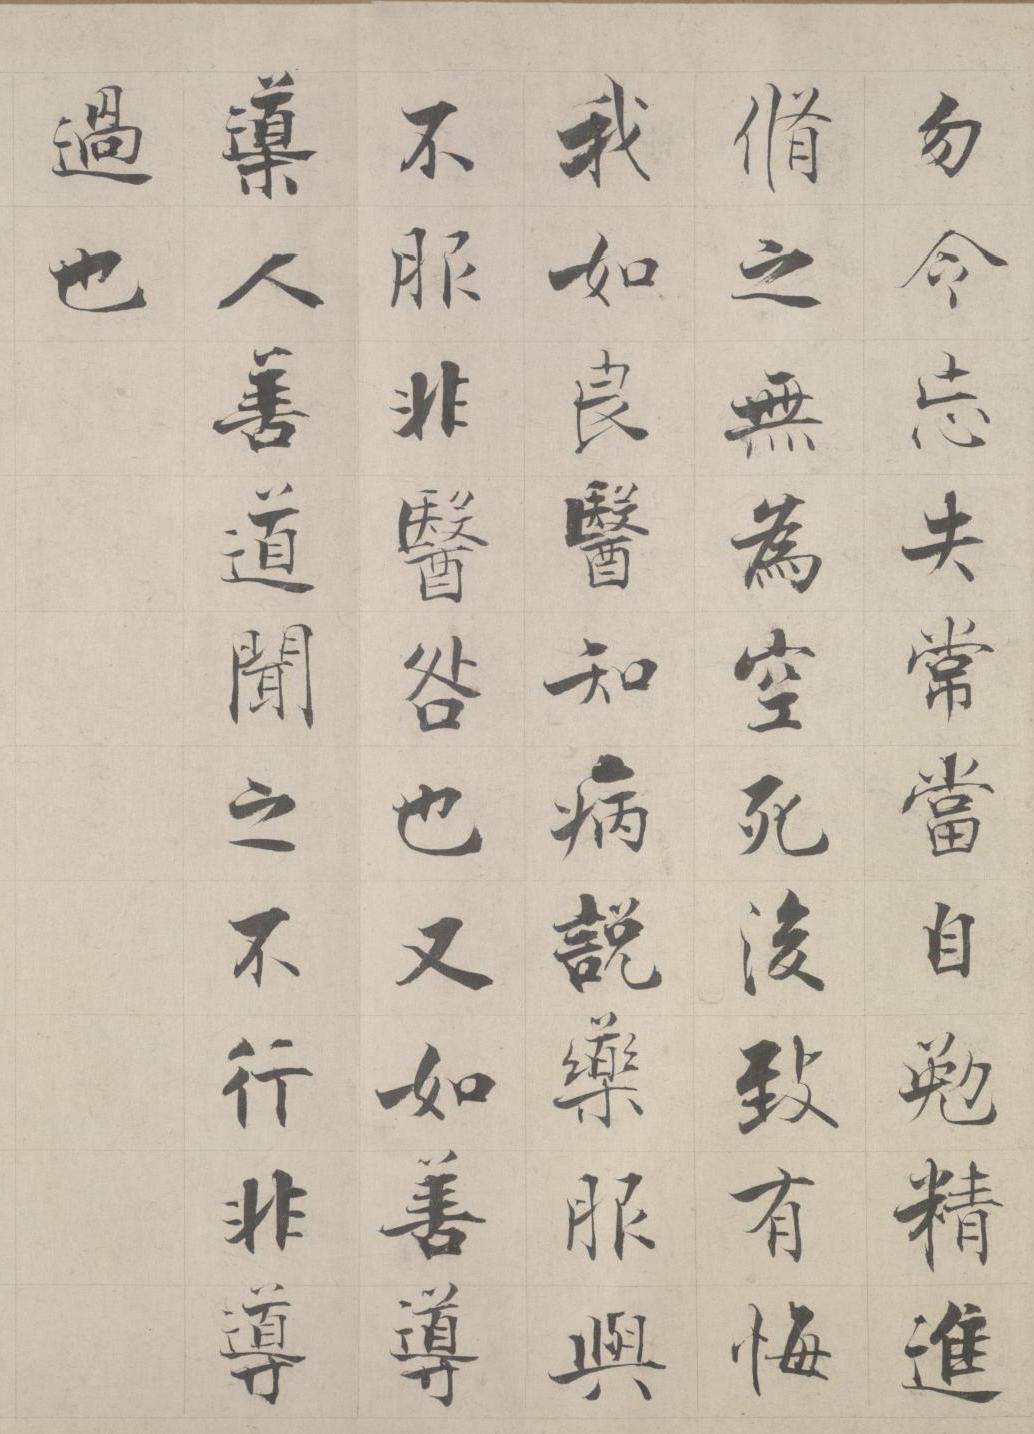 勿令忘失常當自勉精進
脩之無為空死後致有悔
我如良醫知病説藥服與
不服非醫咎也又如善導
導人善道聞之不行非導
過也